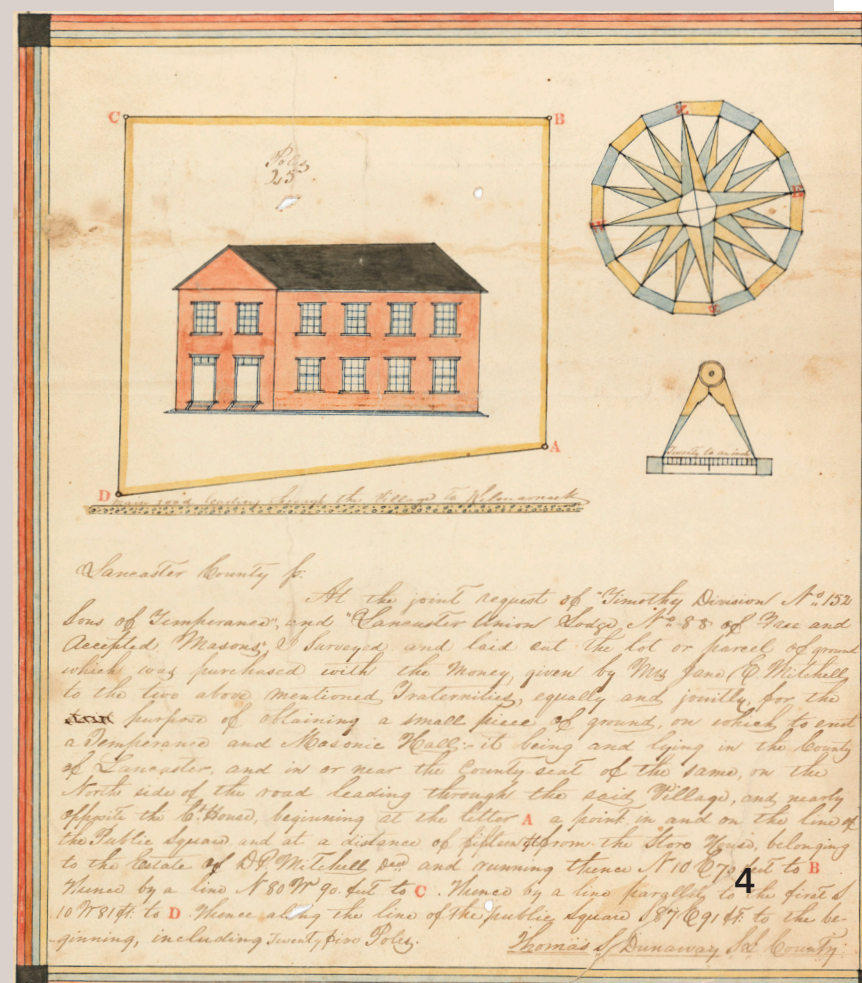 C
B
Poles
25
A
D
Main road leading through the Village to Kilmarnock
Twenty to an inch
Lancaster County fs:
At the joint request of "Timothy Division No. 152
Sons of Temperance", and "Lancaster Union Lodge, No. 88 of Free and
Accepted Masons", I Surveyed and laid out the lot or parcel of ground
which was purchased with the Money, given by Mrs Jane C Mitchell
to the two above mentioned Fraternities, equally and jointly, for the
purpose of obtaining a small piece of ground, on which to erect
a Temperance and Masonic Hall:- it being and lying in the County
of Lancaster, and in or near the County seat of the same, on the
North side of the road leading through the said Village, and nearly
opposite the C. House, beginning at the letter A a point in and on the line of
the Public Square and at a distance of fifteen ft from the Store House, belonging
to the Estate of D P. Mitchell decd and running thence N 10 E 70 feet to B
Thence by a line N 80 W 90 feet to C. Thence by a line parallel to the first S
10 W 81 ft. to D Thence along the line of the public square S 87 E 91 ft. to the be-
ginning, including Twenty five Poles.
Thomas S Dunaway S. L. County.
4